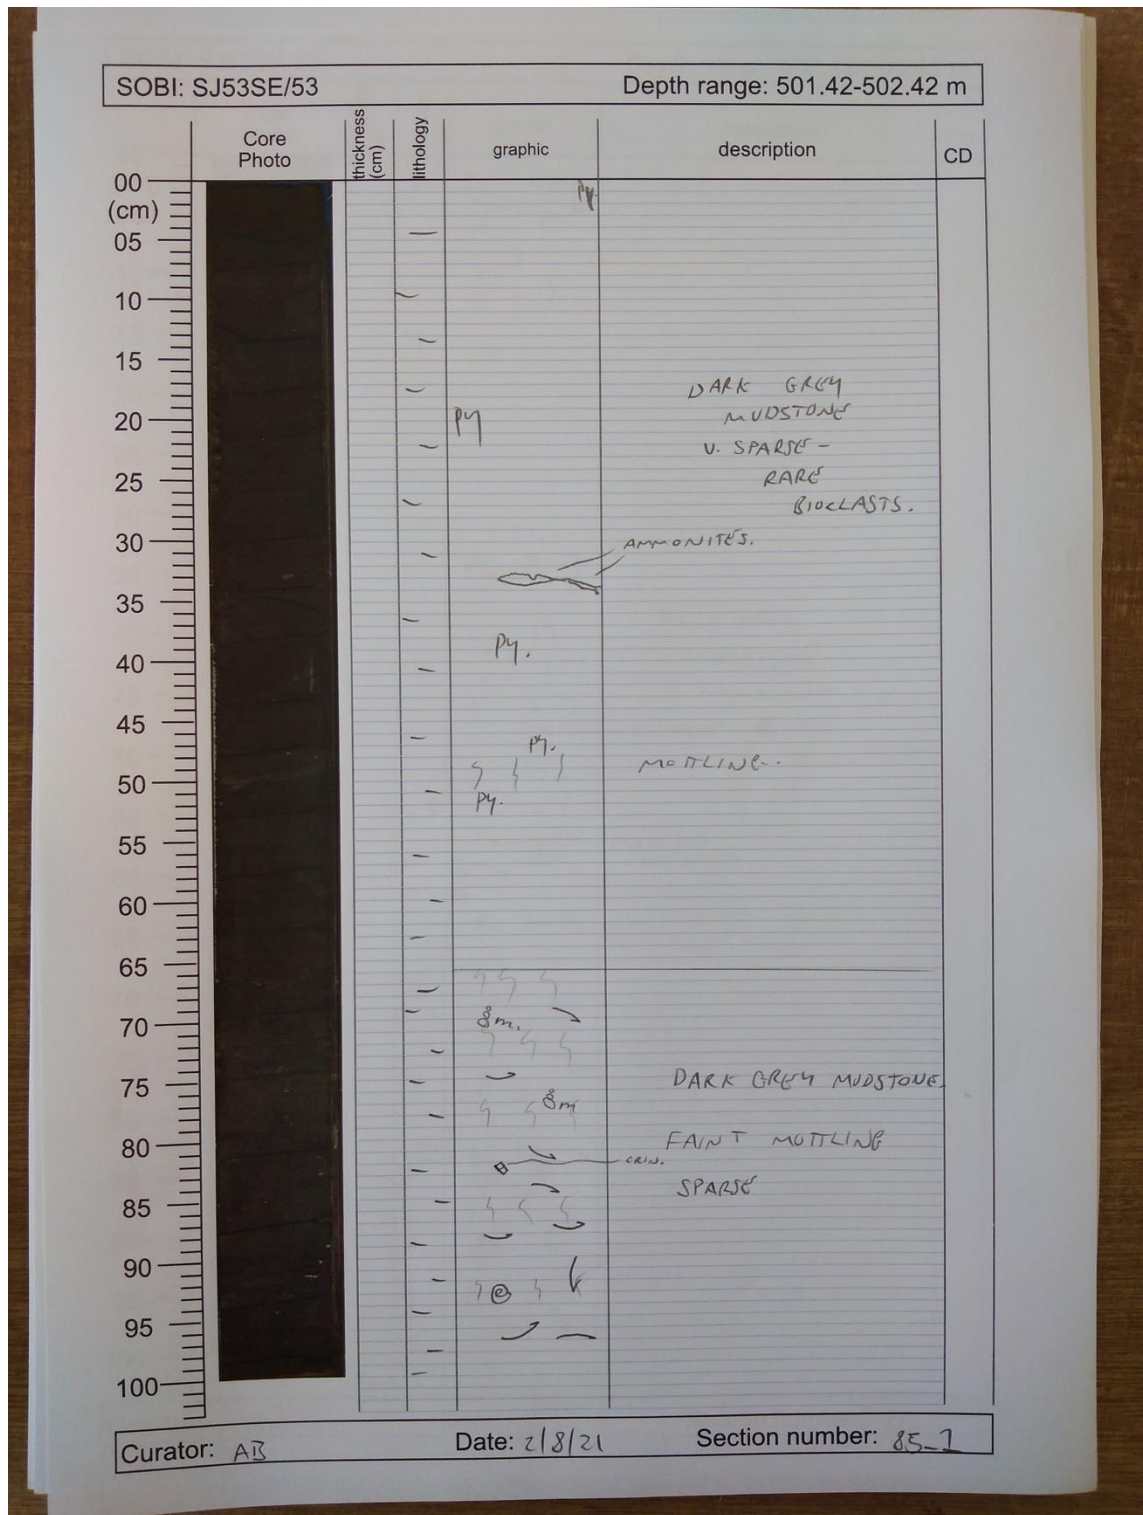 SOBI: SJ53SE/53 Depth range: 501.42-502.42 m
Core Photo
thickness (cm)
lithology
graphic
description
CD
00
(cm)
05
10
15
20
25
30
35
40
45
50
55
60
65
70
75
80
85
90
95
100
Py
DARK GREY
MUDSTONE
Py
V. SPARSE -
RARE
BIOCLASTS.
AMMONITES.
Py.
Py.
MOTTLING.
Py.
m.
DARK GREY MUDSTONE
m
FAINT MOTTLING
CRIN.
SPARSE
Curator: AB Date: 2/8/21 Section number: 85_1